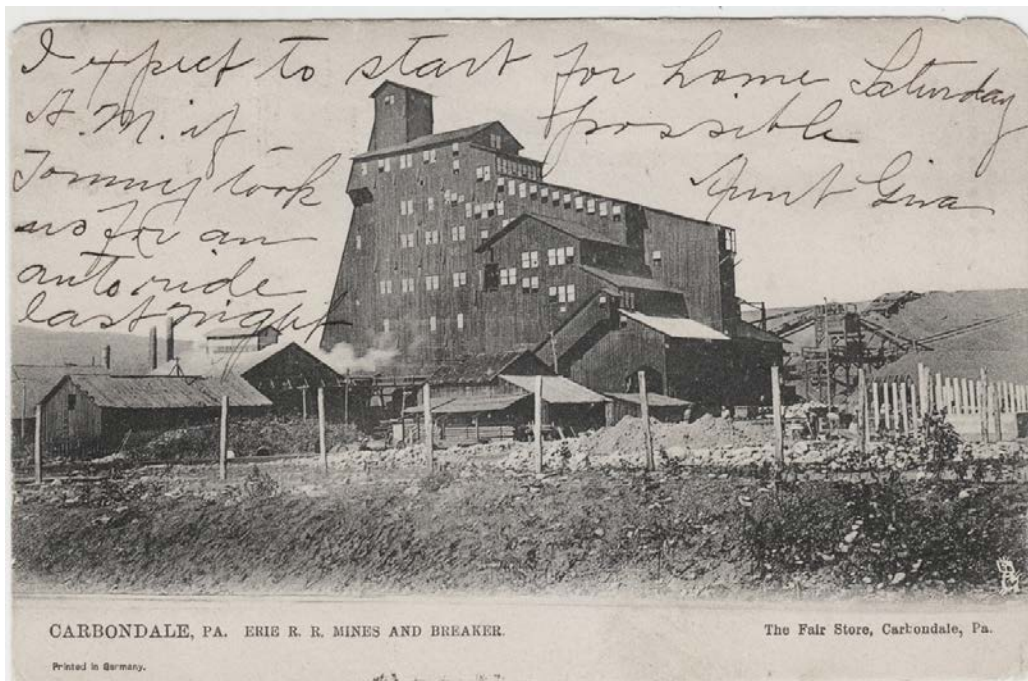 I expect to start for home Saturday
A.M. if possible
Tommy took Aunt Gina
us for an
auto ride
last night
CARBONDALE, PA. ERIE R. R. MINES AND BREAKER.
The Fair Store, Carbondale, Pa.
Printed in Germany.